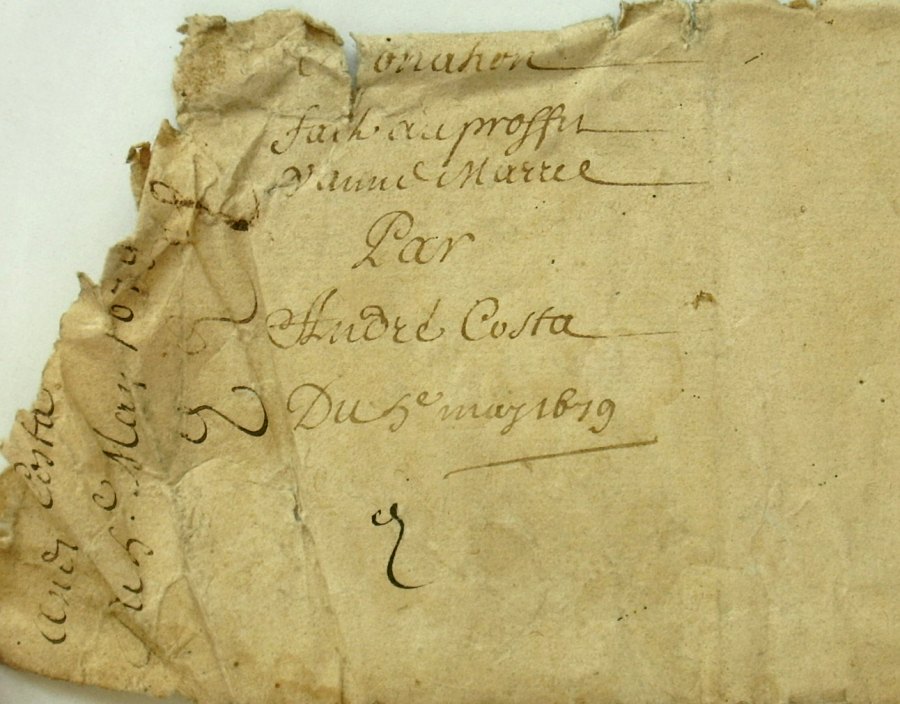 onation
faicte au proffit
d'anne Marree
Par
André Costa
Du 5e may 1679
André Costa
du 5e May 1679